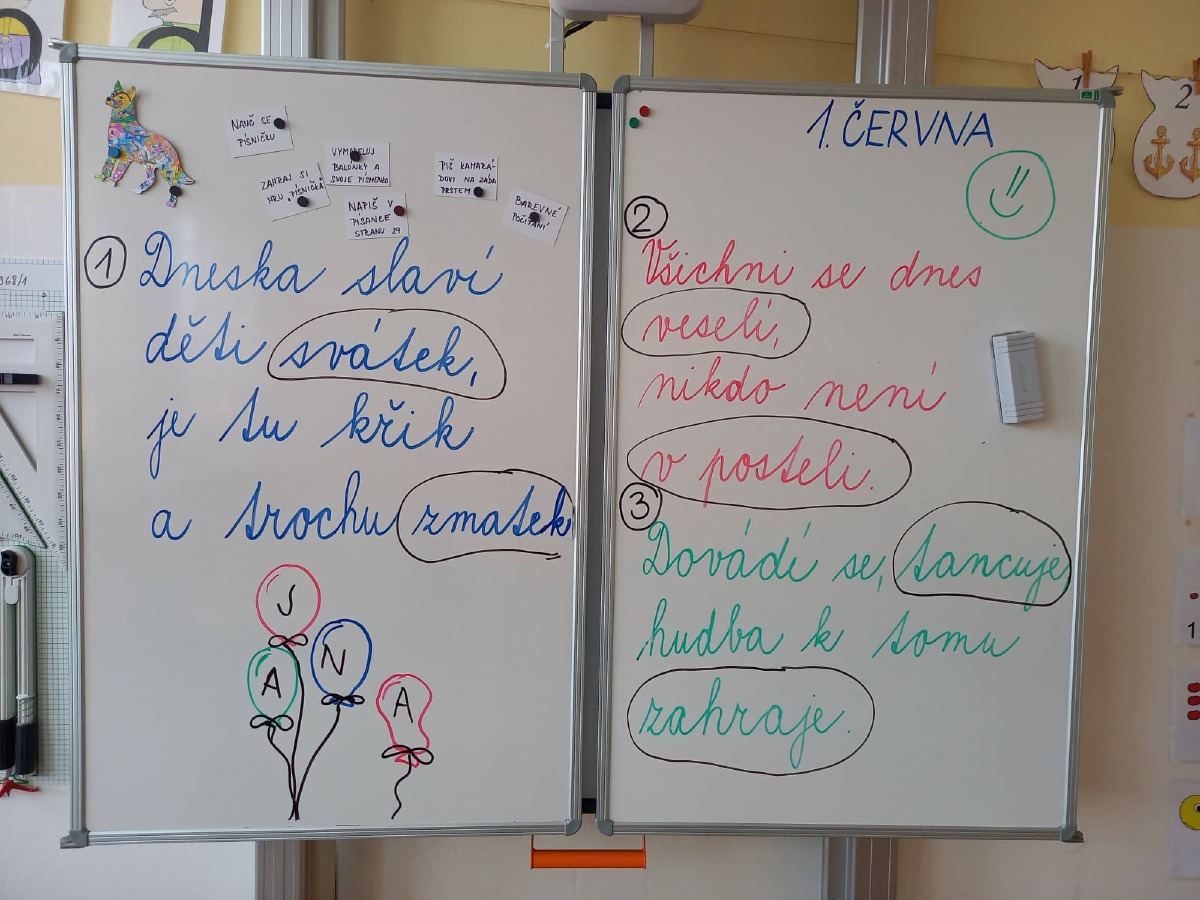 NAUČ SE
PÍSNIČKU
ZAHRAJ SI
HRU „PÍSNIČKA"
VYMALUJ
BALÓNKY A
SVOJE PÍSMENKO
NAPIŠ V
PÍSANCE
STRANU 29
PIŠ KAMARÁ-
DOVI NA ZÁDA
PRSTEM
BAREVNÉ
POČÍTÁNÍ
1 Dneska slaví
děti svátek,
je tu křik
a trochu zmatek
J
A
N
A
1. ČERVNA
2
Všichni se dnes
veselí,
nikdo není
v posteli.
3
Dovádí se, tancuje
hudba k tomu
zahraje.
368/1
1
2
1